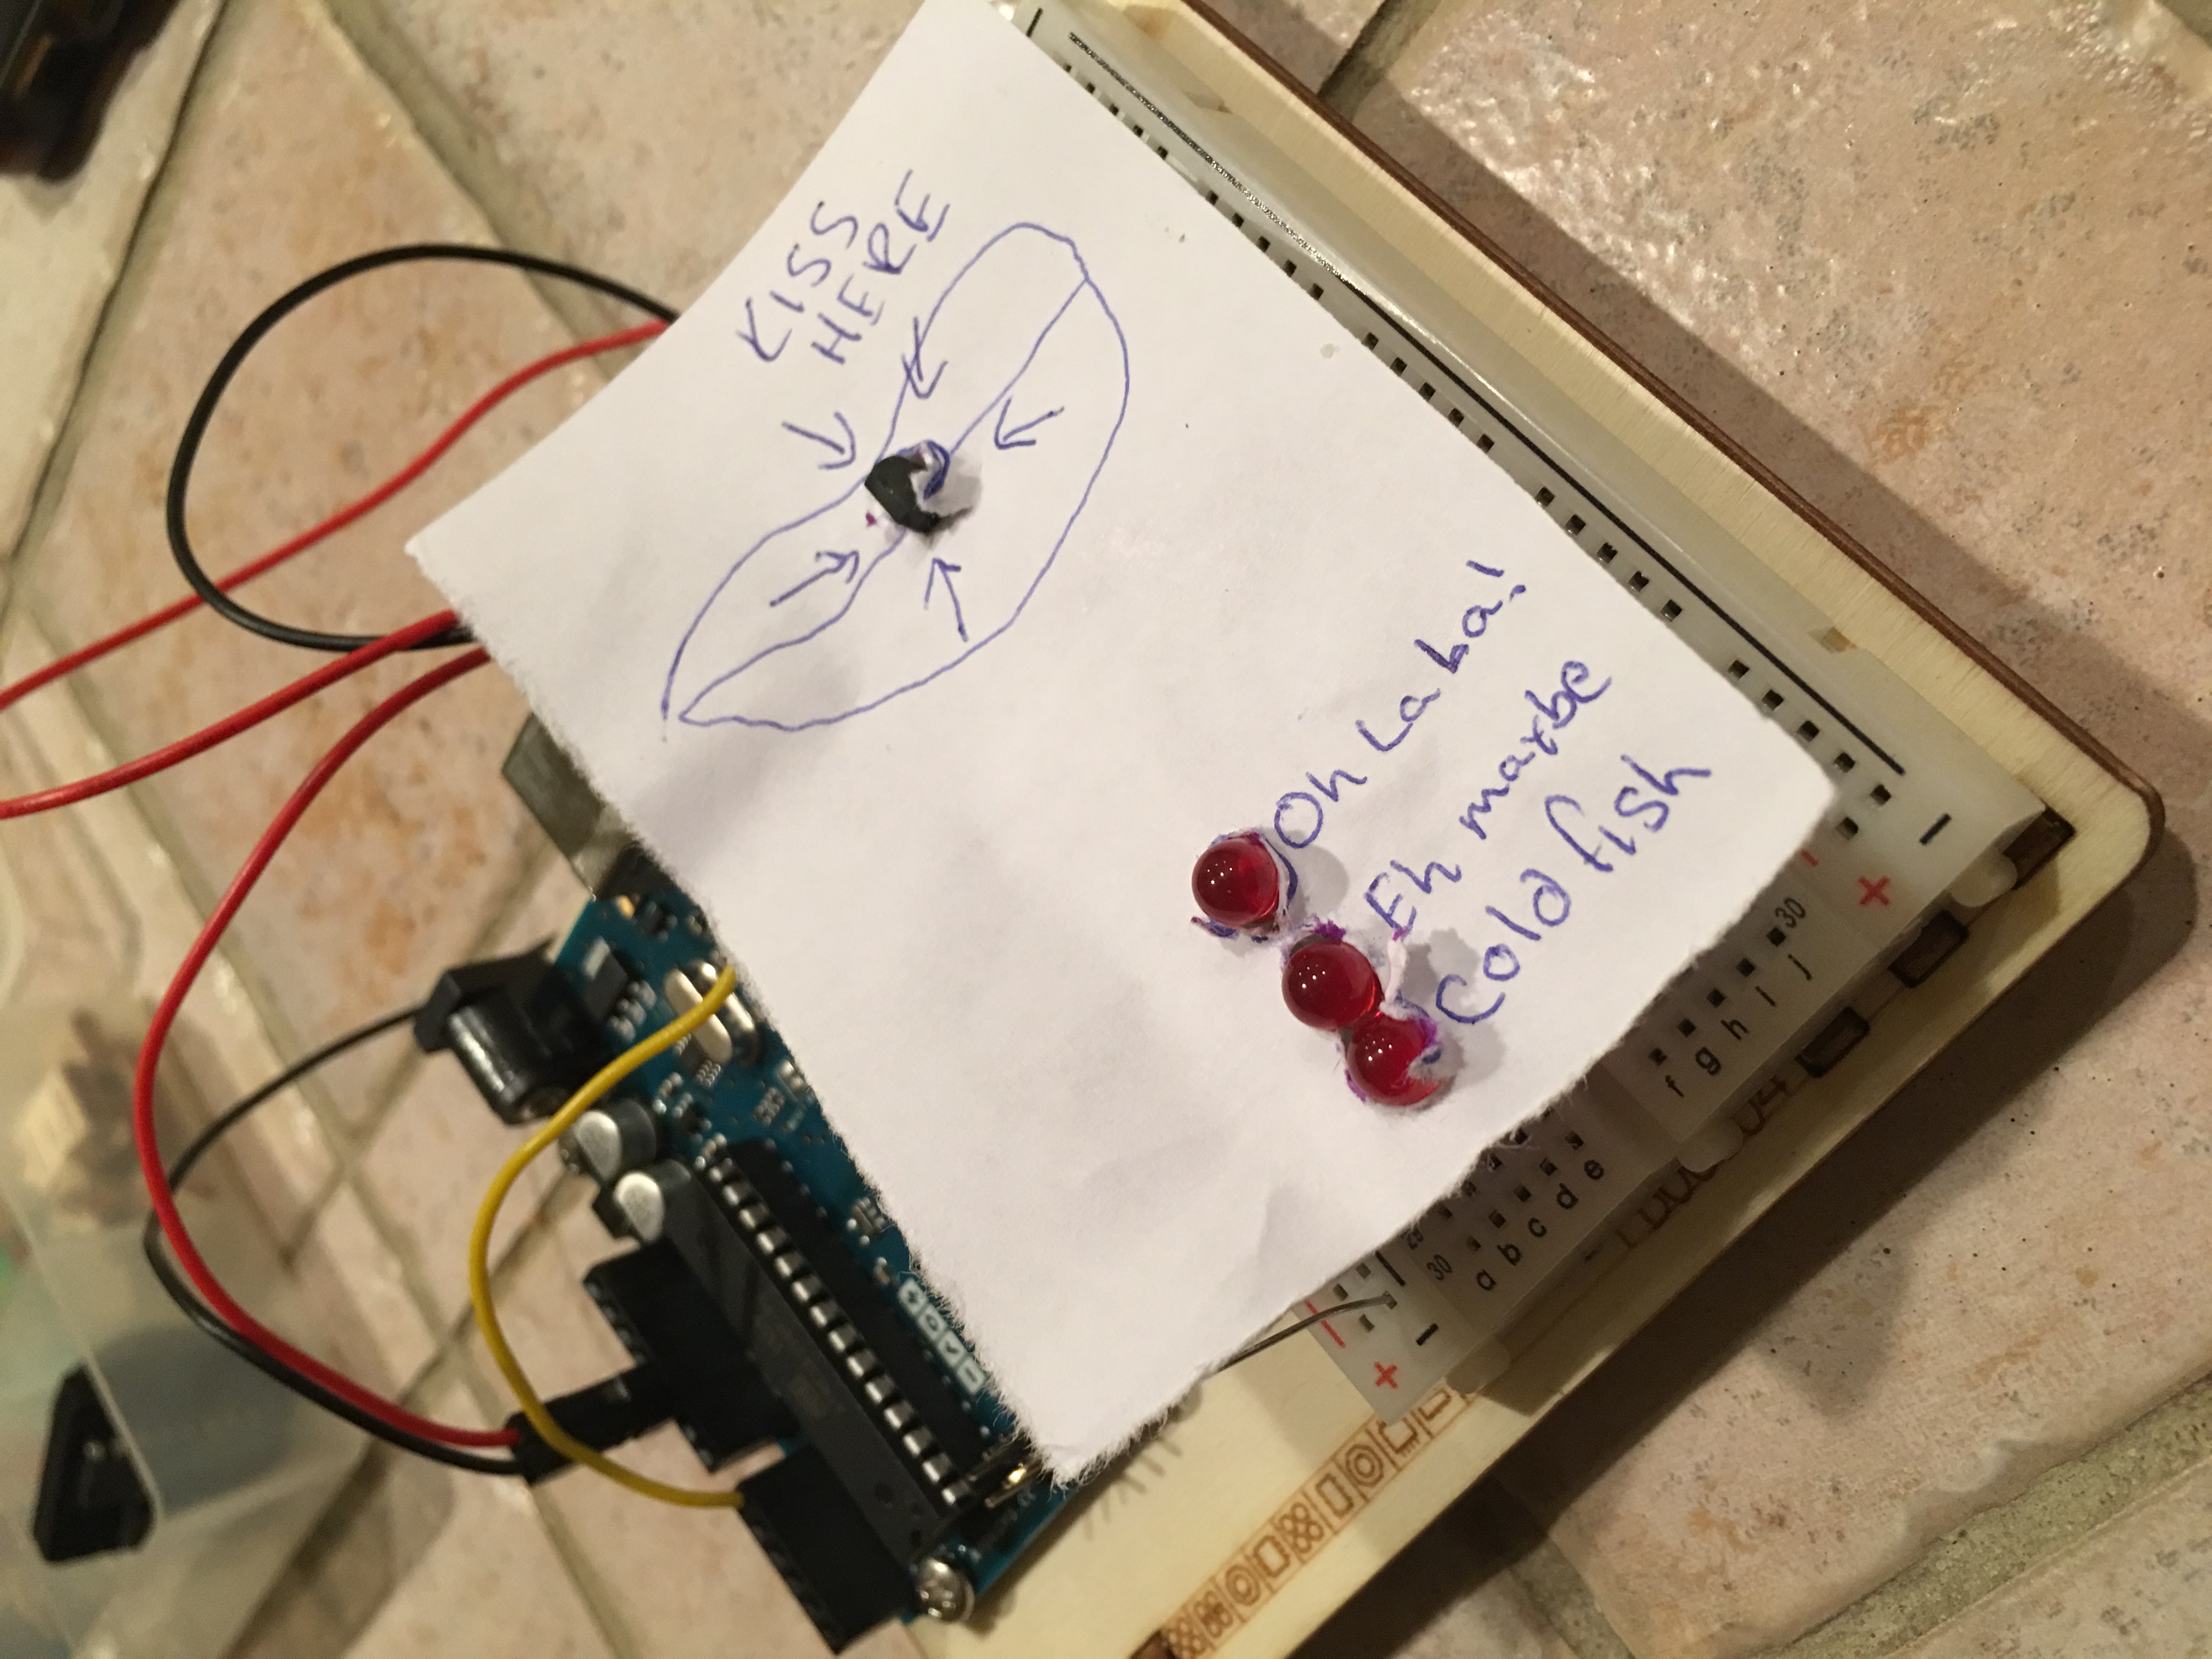 KISS
HERE
Oh La ba!
Eh maybe
Cold fish
+
-
30
a b c d e
f g h i j
30
+
-